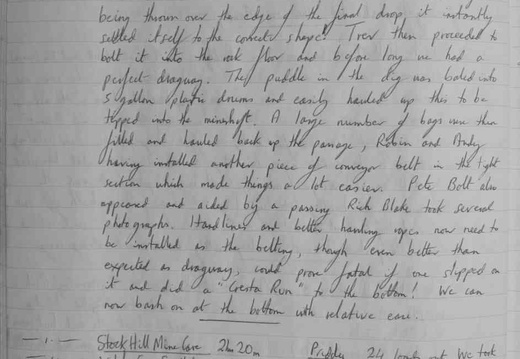 being thrown over the edge of the final drop, it instantly
settled itself to the correct shape! Trev then proceeded to
bolt it into the rock floor and before long we had a
perfect dragway. The puddle in the dig was baled into
5 gallon plastic drums and easily hauled up this to be
tipped into the mineshaft. A large number of bags were then
filled and hauled back up the passage, Robin and Andy
having installed another piece of conveyor belt in the tight
section which made things a lot easier. Pete Bolt also
appeared and aided by a passing Rich Blake took several
photographs. Handlines and better hauling ropes now need to
be installed as the belting, though even better than
expected as dragway, could prove fatal if one slipped on
it and did a "Cresta Run" to the bottom! We can
now bash on at the bottom with relative ease.
-1- Stock Hill Mine Cave 2hr 20m Priddy 24 loads out We took